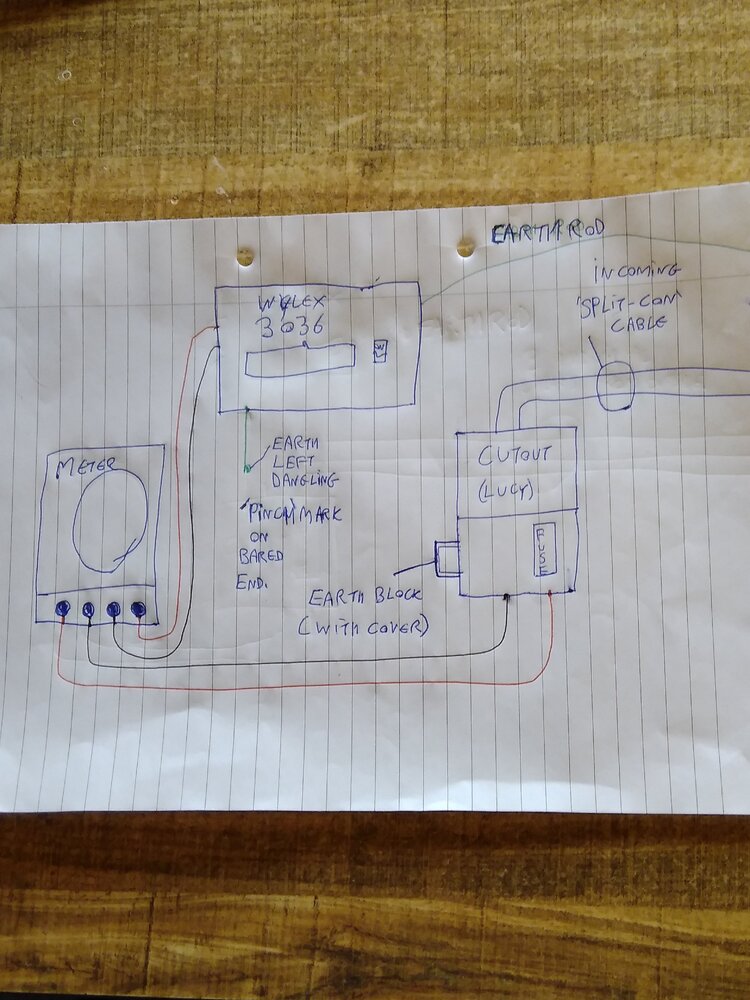 EARTH ROD
INCOMING
'SPLIT-CON'
CABLE
WYLEX
3036
METER
EARTH
LEFT
DANGLING
'PINCH' MARK
ON
BARED
END.
CUTOUT
(LUCY)
FUSE
EARTH BLOCK
(WITH COVER)